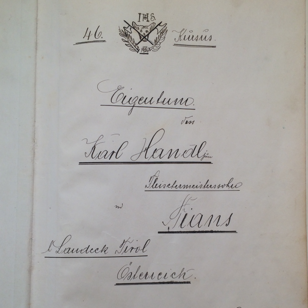 46. Kursus.
Eigentum
von
Karl Handl,
Fleischermeisterssohn
in
Pians
b/Landeck Tirol
Österreich.